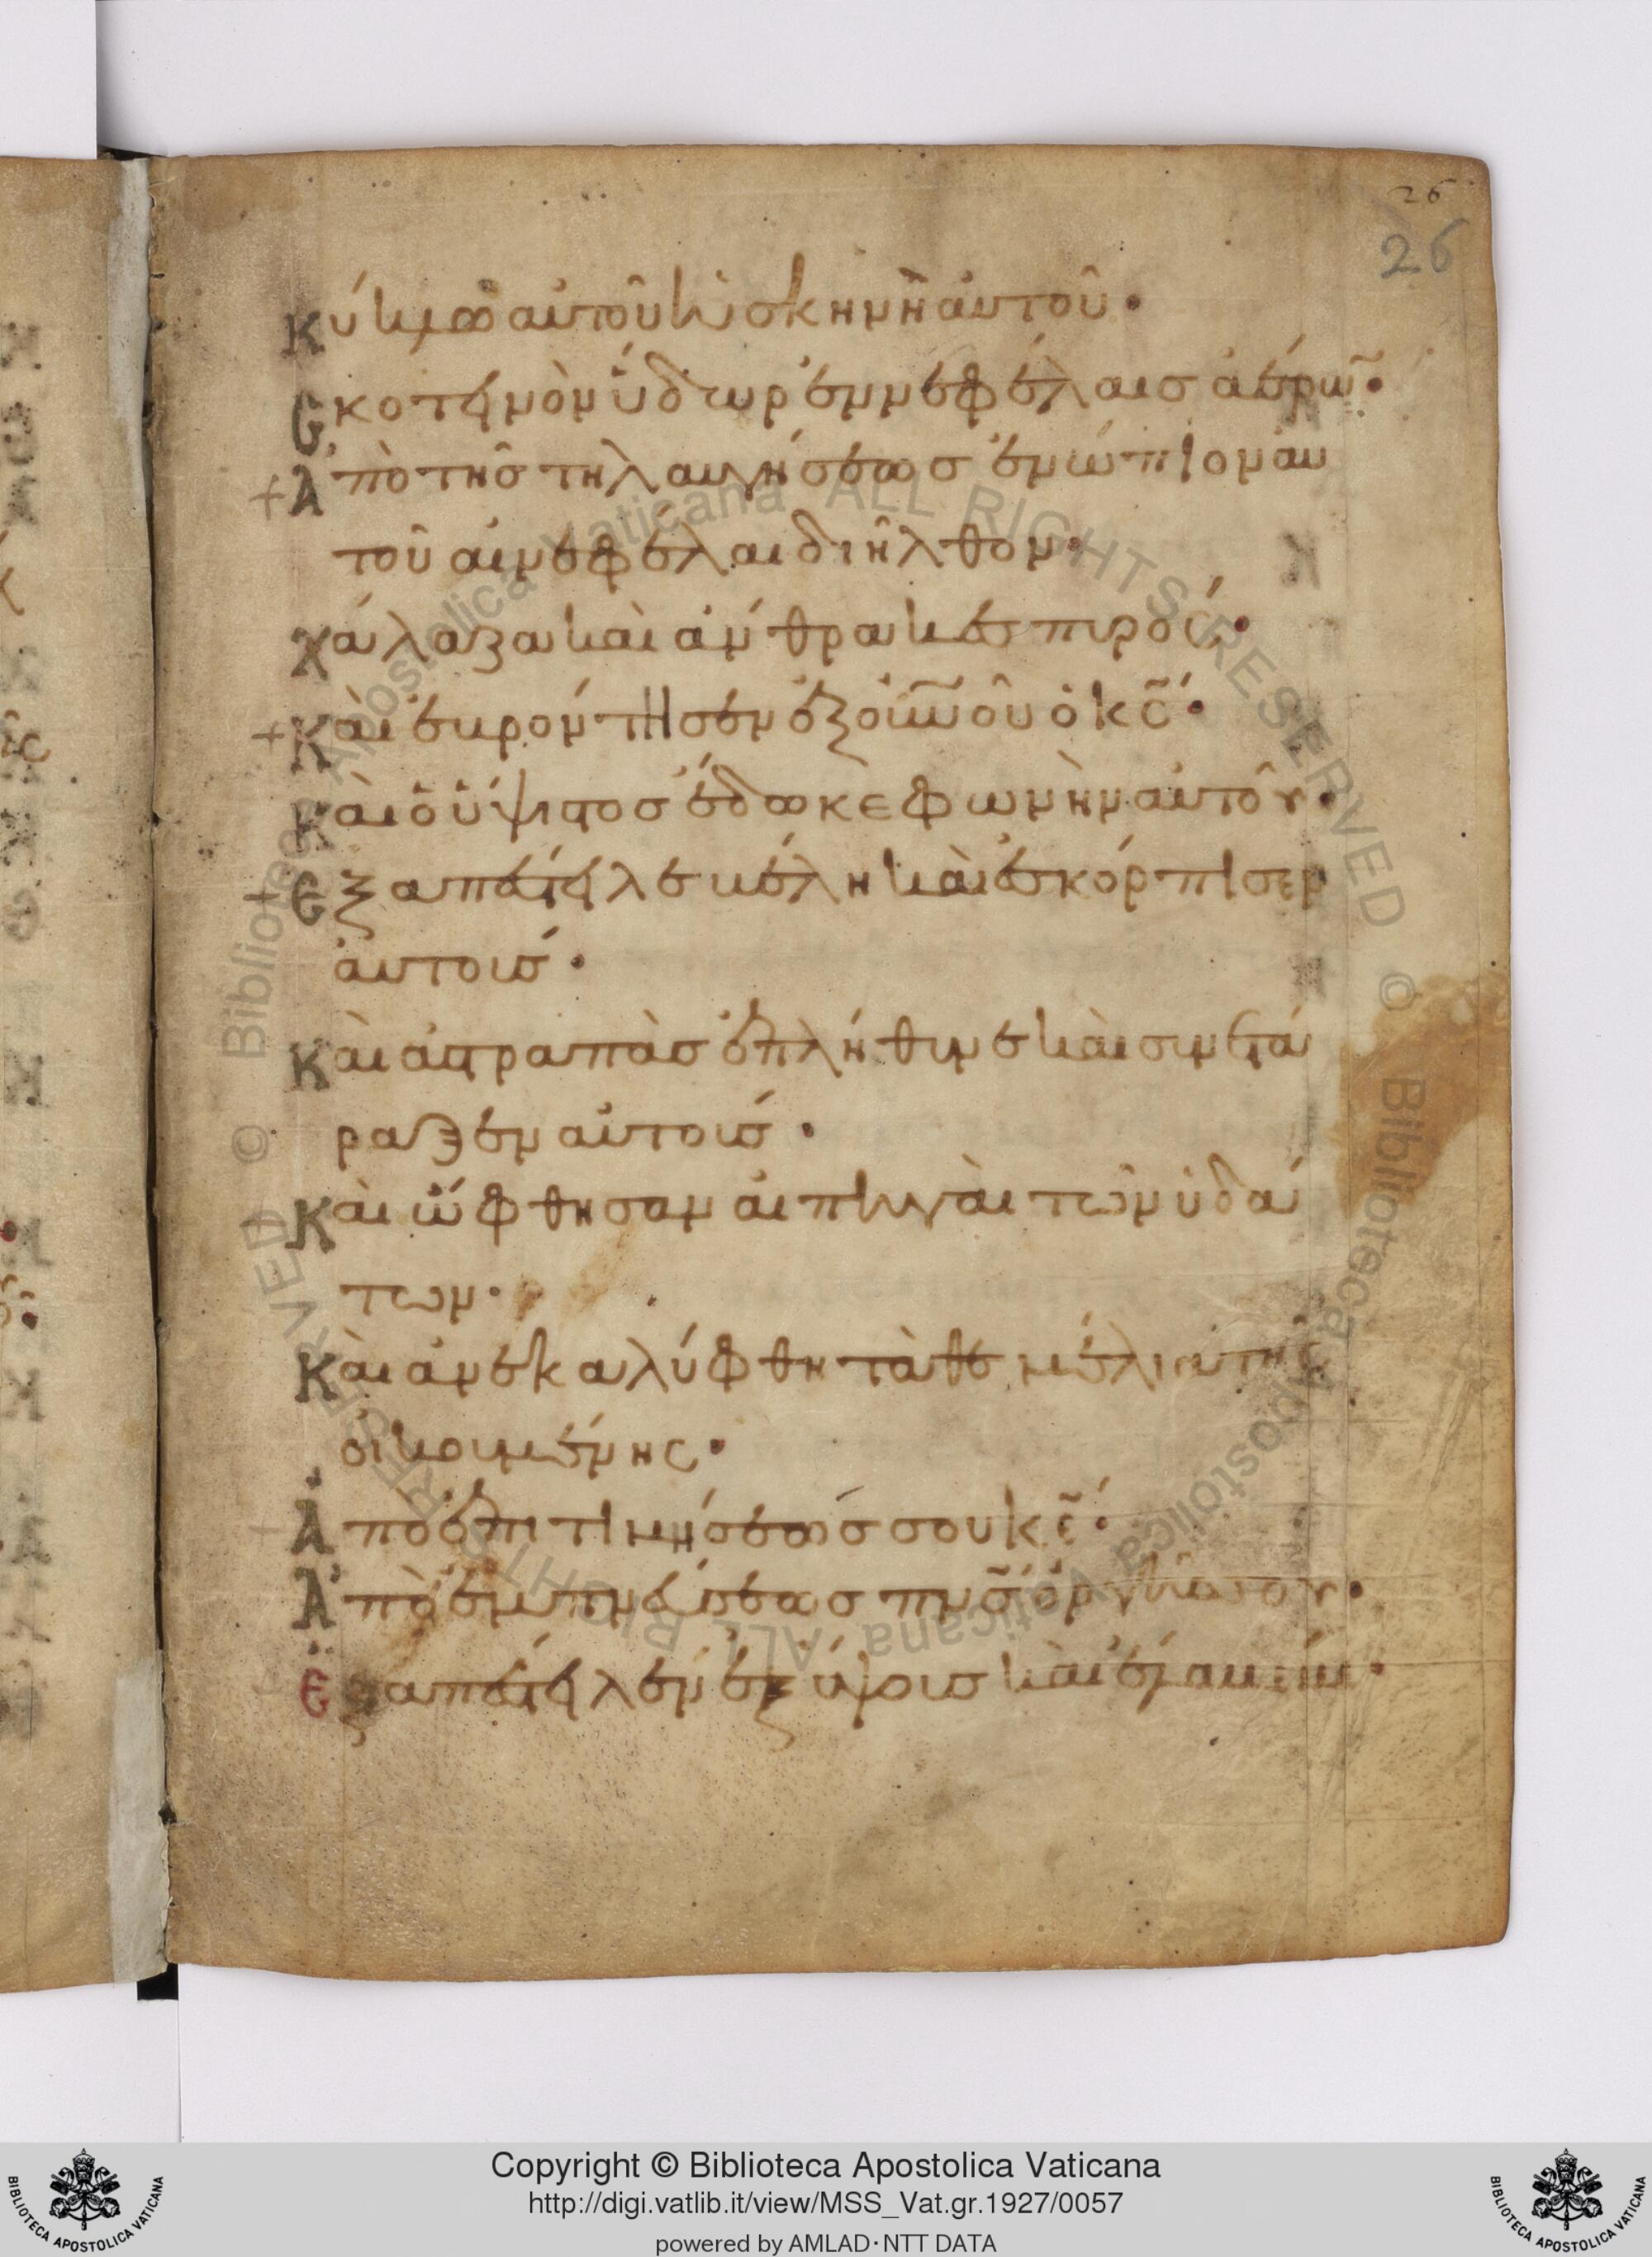 26
26
κύκλω αυτοῦ ἡ σκηνὴ ἀυτοῦ·
Σκοτεινὸν ὕδωρ ἐν νεφέλαισ ἀέρω̃·
+ Ἀπὸ τῆσ τηλαυγήσεωσ ἐνώπιον ἀυ
τοῦ αἱ νεφέλαι διῆλθον·
χάλαζα καὶ ἄνθρακεσ πυρόσ·
+ Καὶ ἐβρόντησεν ἐξ οὐνοῦ ὁ κς̃·
Καὶ ὁ ὕψιστοσ ἔδωκε φωνὴν ἀυτοῦ·
+ Εξαπέστειλε βέλη καὶ ἐσκόρπισεν
ἀυτούσ·
Καὶ ἀστραπὰσ ἐπλήθυνε καὶ συνετά
ραξεν αὐτούσ·
Καὶ ὤφθησαν αἱ πηγαὶ τῶν ὑδά
των·
Καὶ ἀνεκαλύφθη τὰ θεμέλια τῆς
οἰκουμένης·
Ἀπὸ ἐπιτιμήσεώσ σου κε̃·
Ἀπὸ ἐμπνεύσεωσ πνσ̃ ὀργῆσ σου·
Εξαπέστειλεν ἐξ ὕψουσ καὶ ἔλαβέν με·
© Biblioteca Apostolica Vaticana ALL RIGHTS RESERVED © Biblioteca Apostolica Vaticana ALL RIGHTS RESERVED
Copyright © Biblioteca Apostolica Vaticana
http://digi.vatlib.it/view/MSS_Vat.gr.1927/0057
powered by AMLAD·NTT DATA
BIBLIOTECA APOSTOLICA VATICANA
BIBLIOTECA APOSTOLICA VATICANA